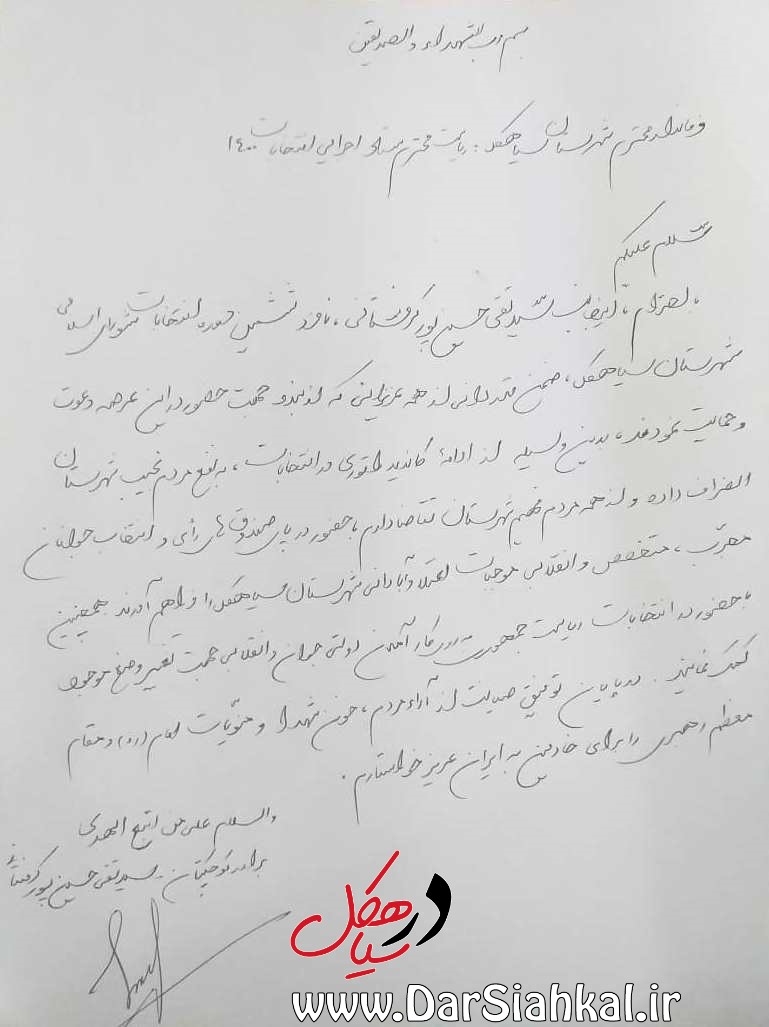 بسم رب الشهداء والصدیقین
فرماندار محترم شهرستان سیاهکل؛ ریاست محترم ستاد اجرایی انتخابات ۱۴۰۰
سلام علیکم
با احترام، اینجانب سید تقی حسین پور کرفستانی، نامزد ششمین دوره انتخابات شورای اسلامی
شهرستان سیاهکل، ضمن قدردانی از همه عزیزانی که از بنده جهت حضور در این عرصه دعوت
و حمایت نمودند، بدین وسیله از ادامۀ کاندیداتوری در انتخابات، به نفع مردم نجیب شهرستان
انصراف داده و از همه مردم فهیم شهرستان تقاضا دارم با حضور در پای صندوق های رأی و انتخاب جوانان
مجرّب، متخصص و انقلابی موجبات اعتلا و آبادانی شهرستان سیاهکل را فراهم آورند. همچنین
با حضور در انتخابات ریاست جمهوری به روی کار آمدن دولتی جوان و انقلابی جهت تغییر وضع موجود
کمک نمایند. در پایان توفیق صیانت از آراء مردم، خون شهدا و منویّات امام (ره) و مقام
معظم رهبری را برای خادمین به ایران عزیز خواستارم.
والسلام علی من اتبع الهدی
برادر کوچکتان سید تقی حسین پور کرفستانی
در سیاهکل
www.DarSiahkal.ir